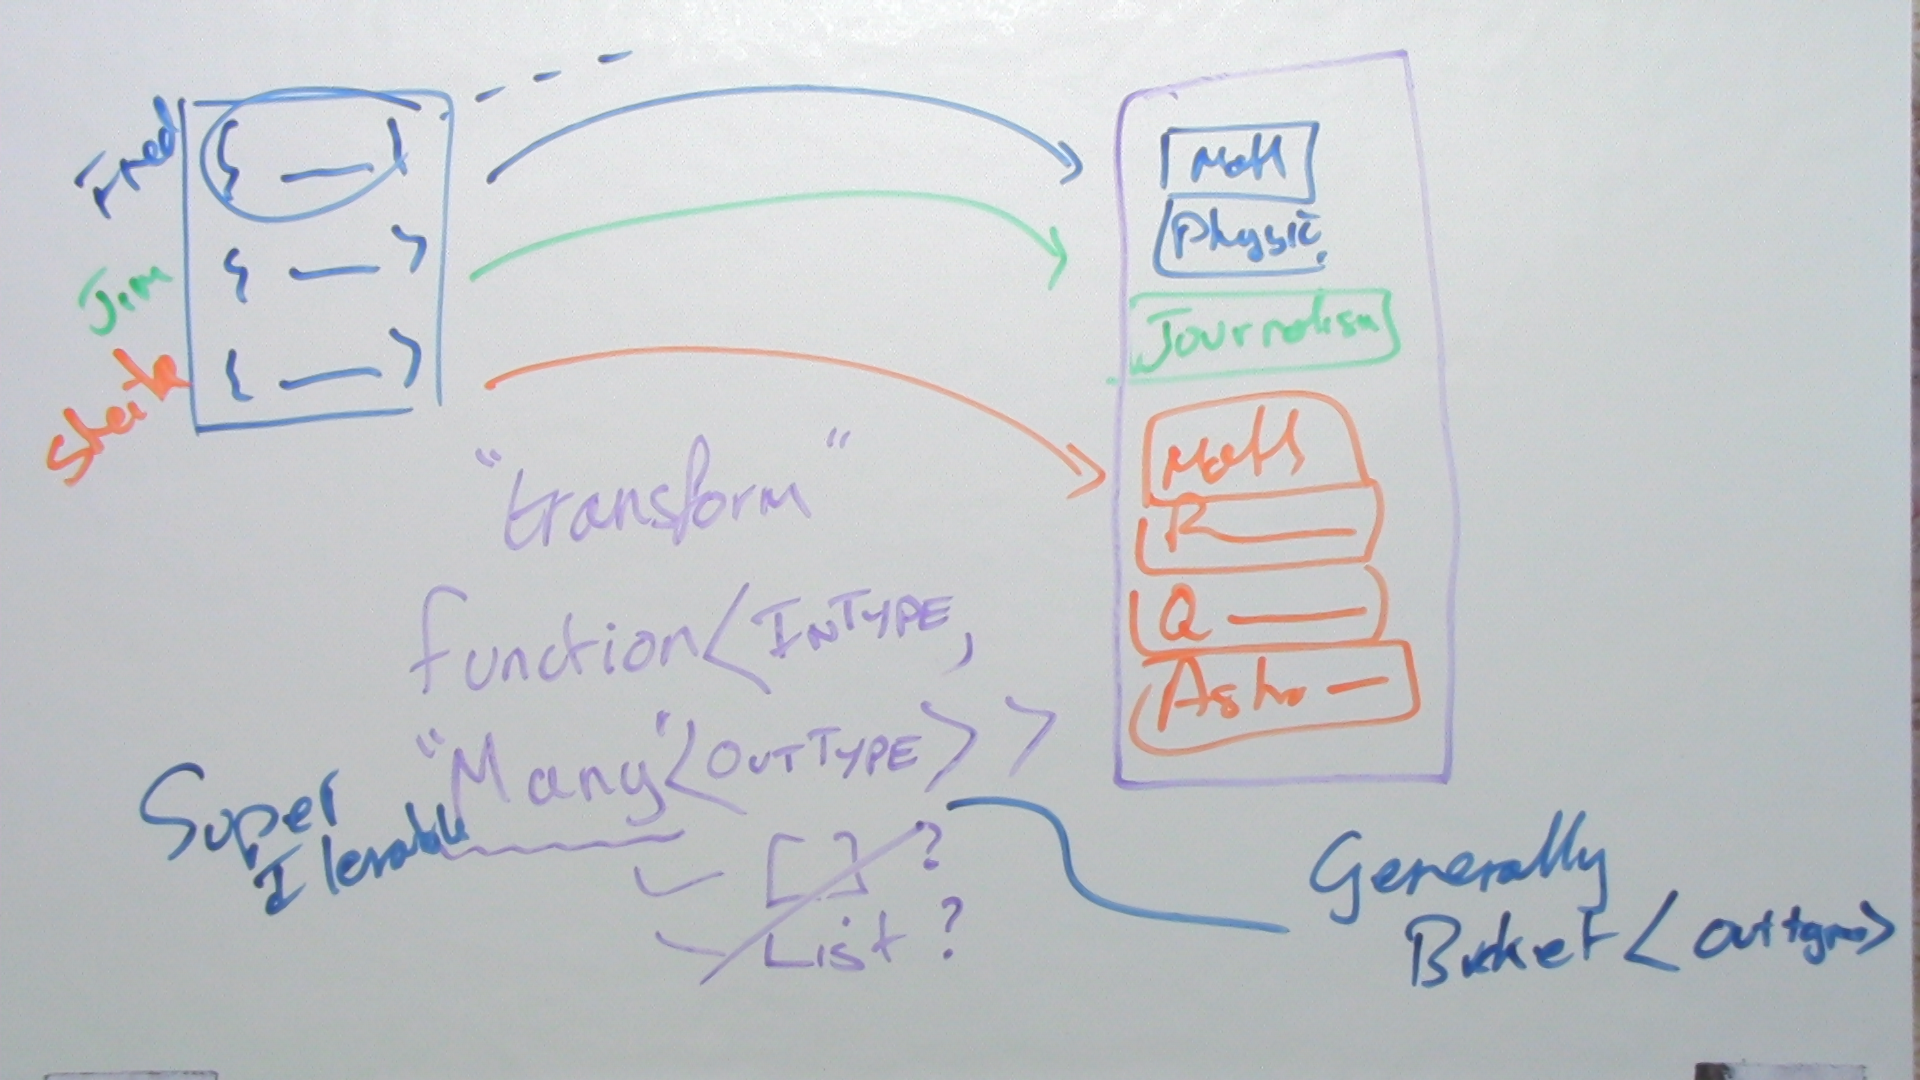 Fred
Jim
Sheila
Math
Physic
Journalism
Math
R
Q
Astro
"transform"
function<INTYPE,
"Many"<OUTTYPE>>
Super
Iterable
[]?
List?
Generally
Bucket<outtype>